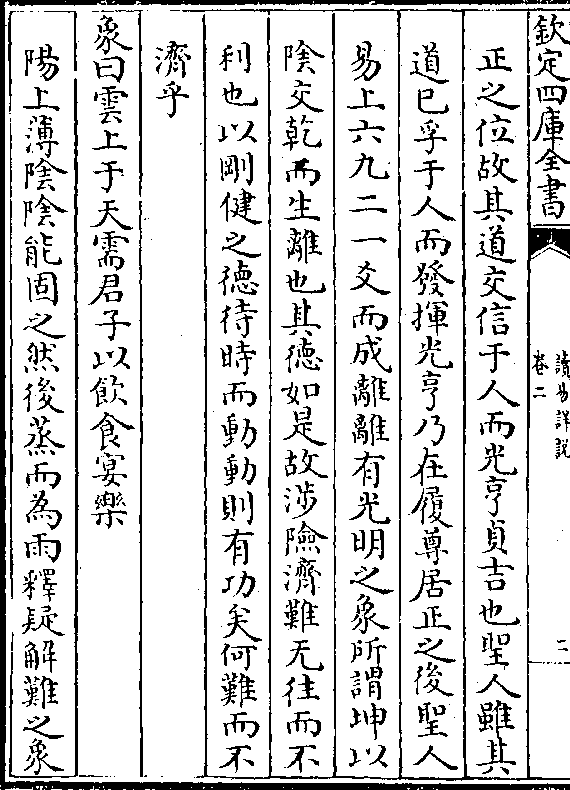 欽定四庫全書
讀易詳説
卷二
二
正之位故其道交信于人而光亨貞吉也聖人雖其
道已孚于人而發揮光亨乃在履尊居正之後聖人
易上六九二一爻而成離離有光明之象所謂坤以
陰交乾而生離也其徳如是故涉險濟難无往而不
利也以剛健之徳待時而動動則有功矣何難而不
濟乎
象曰雲上于天需君子以飲食宴樂
陽上薄陰陰能固之然後蒸而為雨釋疑解難之象